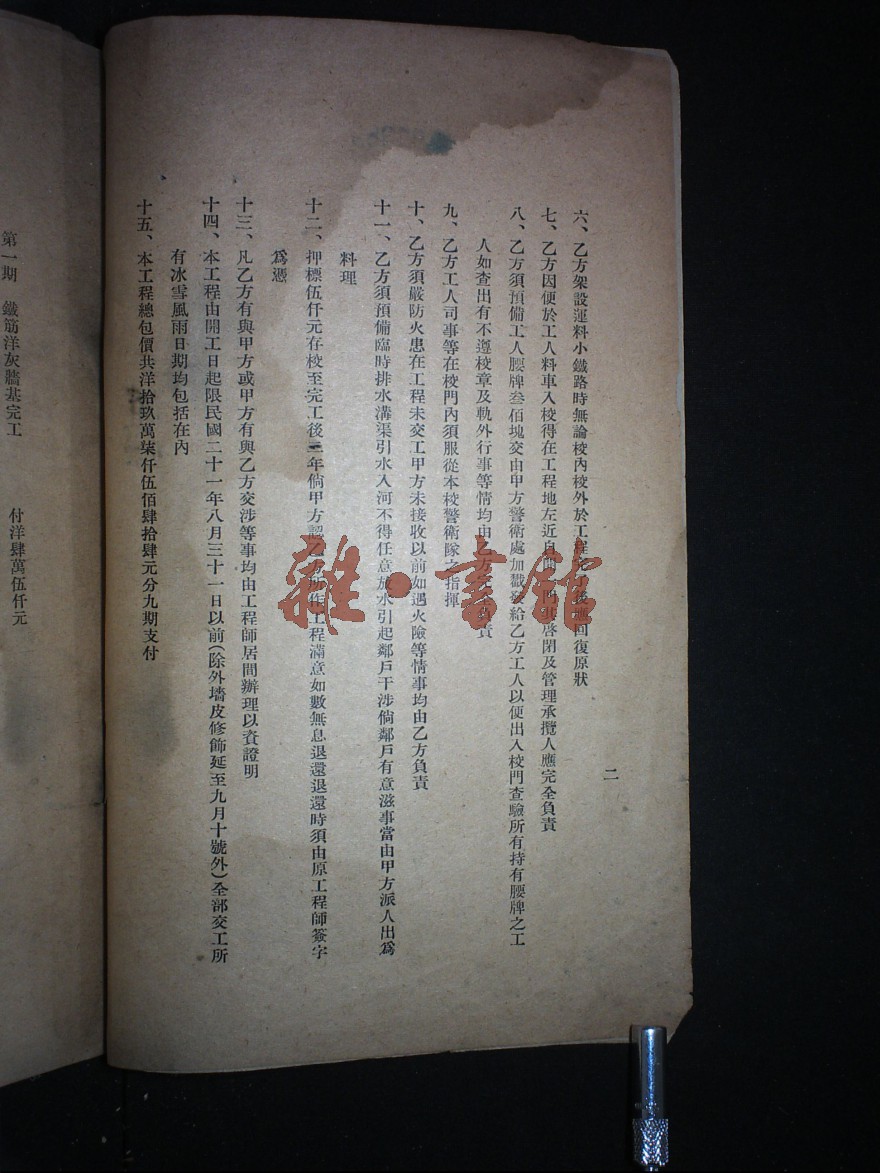 二
六、乙方架設運料小鐵路時無論校內校外於工程完了後應回復原狀
七、乙方因便於工人料車入校得在工程地左近自開 啓閉及管理承攬人應完全負責
八、乙方須預備工人腰牌叁佰塊交由甲方警衛處加戳發給乙方工人以便出入校門查驗所有持有腰牌之工
人如查出有不遵校章及軌外行事等情均由乙方完全負責
九、乙方工人司事等在校門內須服從本校警衛隊之指揮
十、乙方須嚴防火患在工程未交工甲方未接收以前如遇火險等情事均由乙方負責
十一、乙方須預備臨時排水溝渠引水入河不得任意放水引起鄰戶干涉倘鄰戶有意滋事當由甲方派人出爲
料理
十二、押標伍仟元存校至完工後 年倘甲方認乙方所作工程滿意如數無息退還退還時須由原工程師簽字
爲憑
十三、凡乙方有與甲方或甲方有與乙方交涉等事均由工程師居間辦理以資證明
十四、本工程由開工日起限民國二十一年八月三十一日以前(除外墻皮修飾延至九月十號外)全部交工所
有冰雪風雨日期均包括在內
十五、本工程總包價共洋拾玖萬柒仟伍佰肆拾肆元分九期支付
第一期 鐵筋洋灰牆基完工 付洋肆萬伍仟元
雜·書館